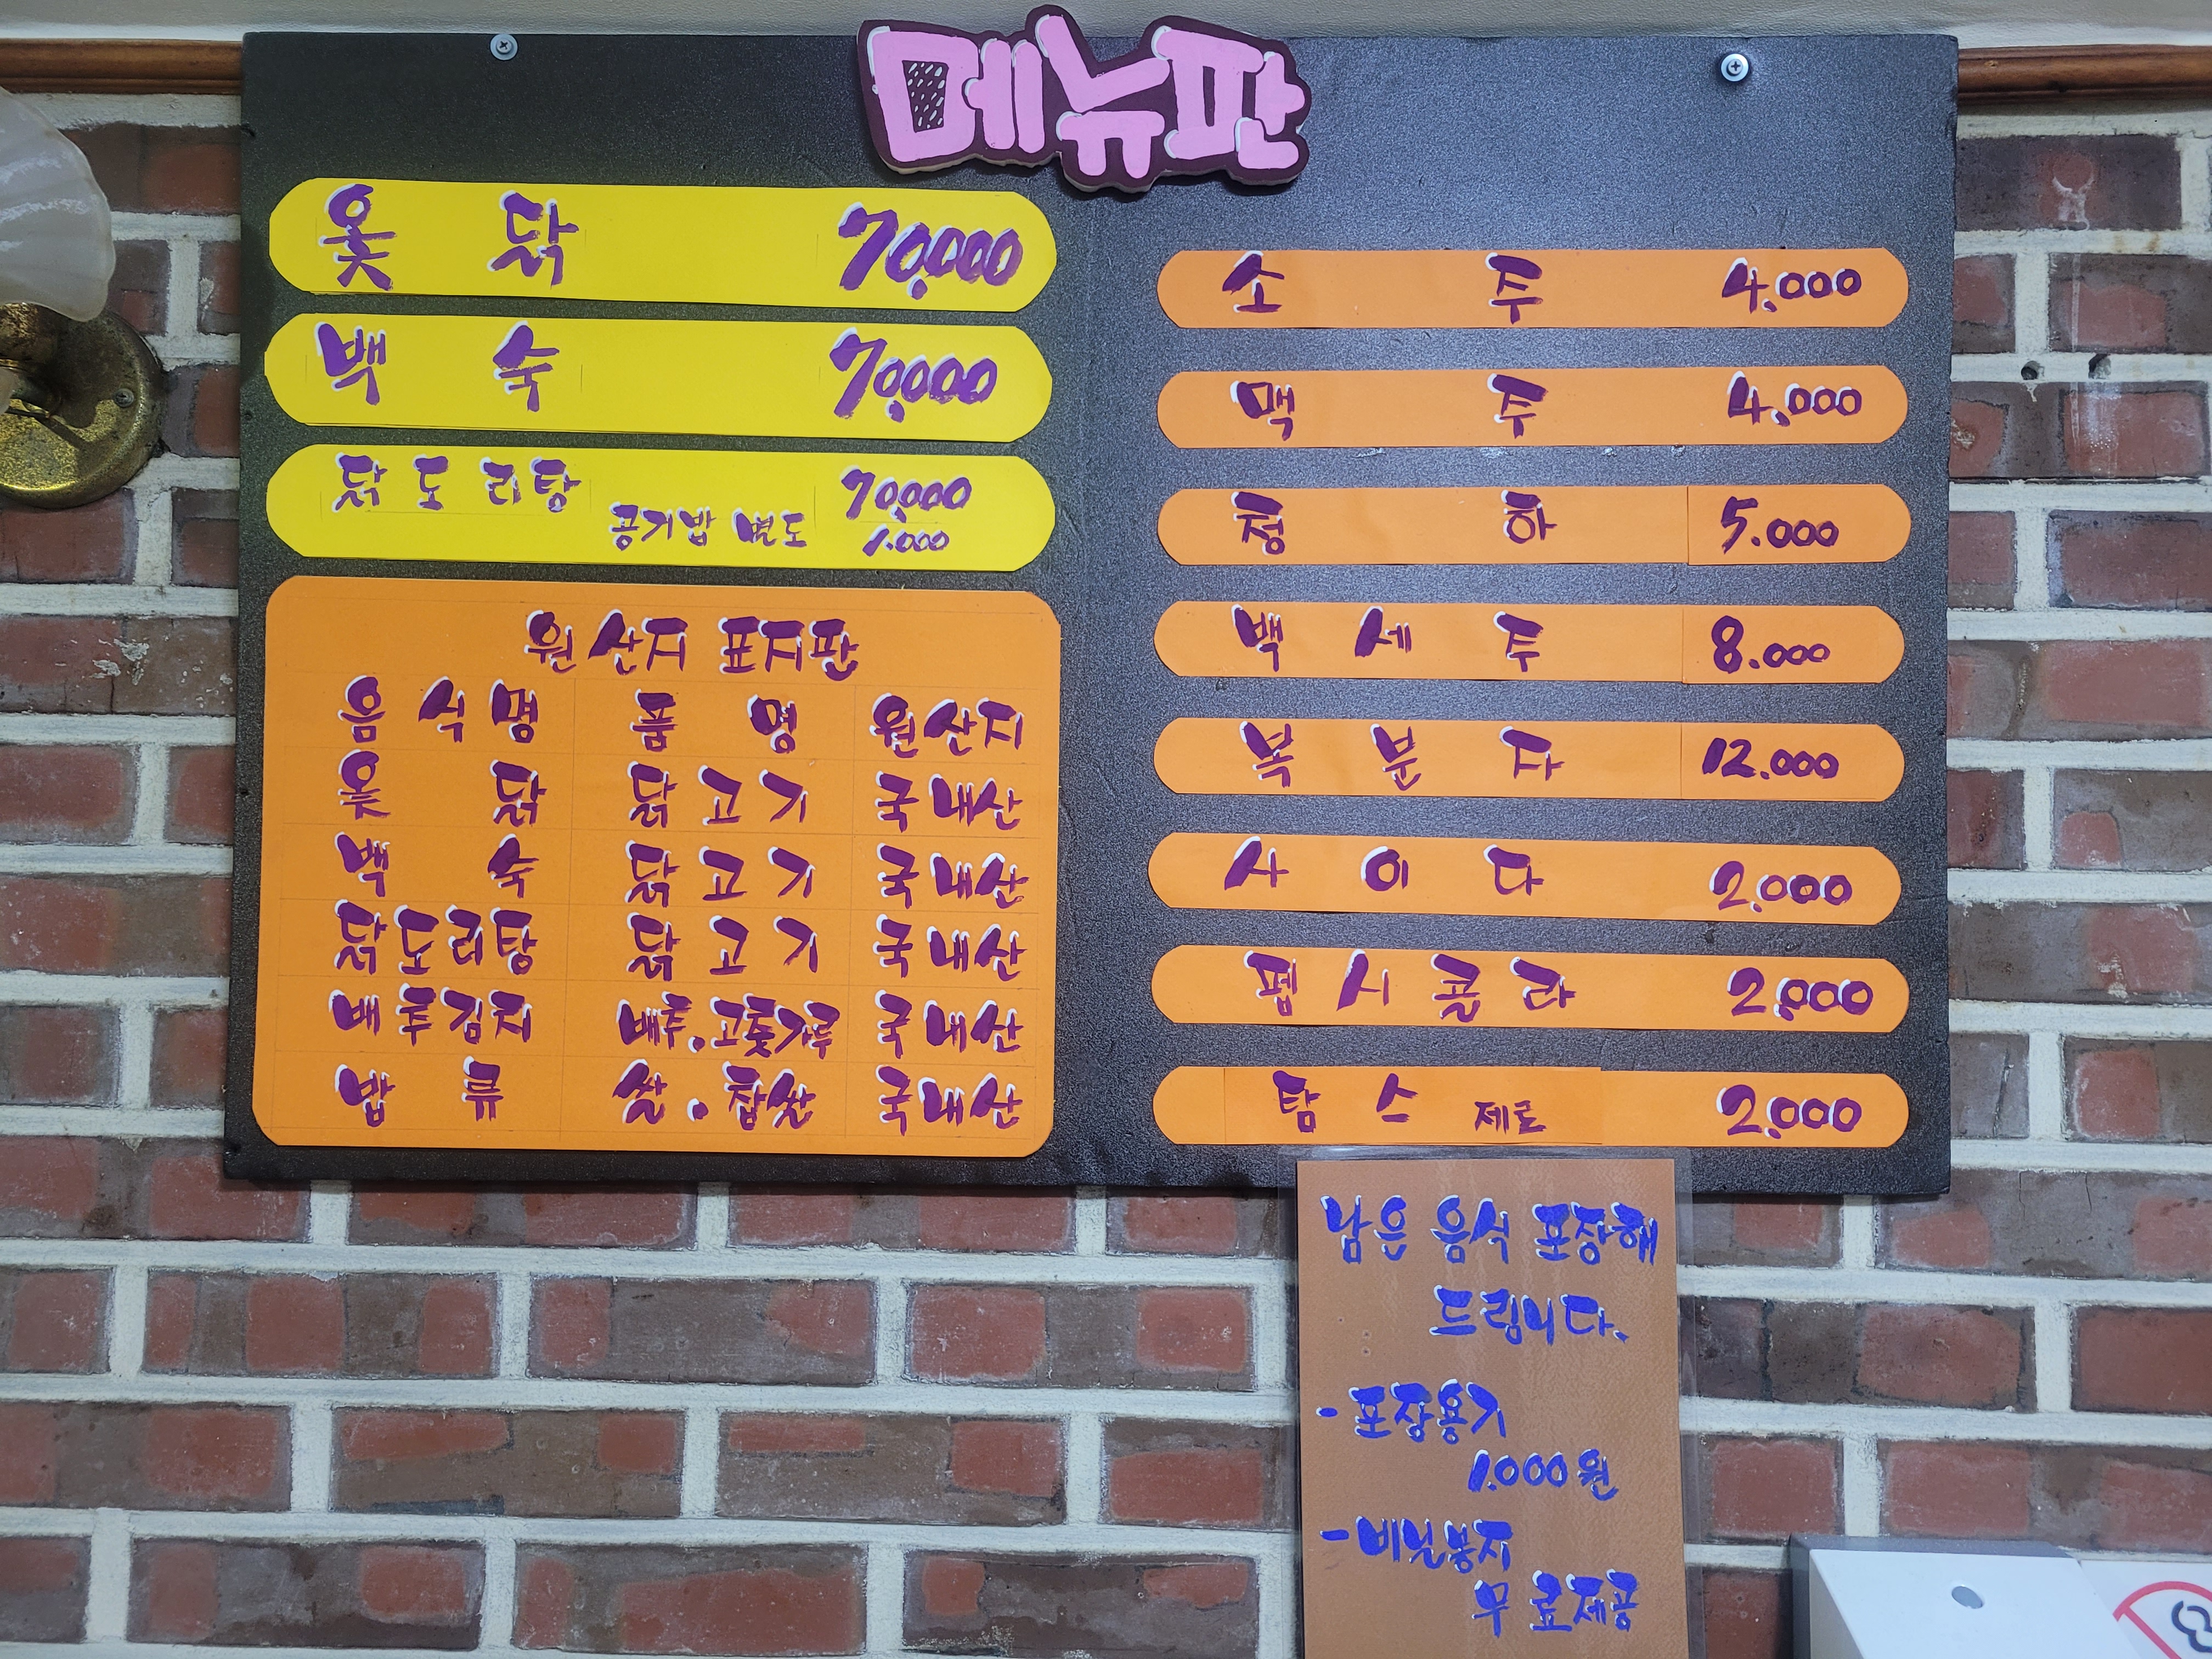 메뉴판
옻 닭 70,000
백 숙 70,000
닭도리탕 70,000
공기밥 별도 1.000
원산지 표지판
음식명 품명 원산지
옻 닭 닭고기 국내산
백 숙 닭고기 국내산
닭도리탕 닭고기 국내산
배추김치 배추.고춧가루 국내산
밥 류 쌀.찹쌀 국내산
소 주 4.000
맥 주 4.000
청 하 5.000
백 세 주 8.000
복 분 자 12.000
사 이 다 2.000
펩 시 콜 라 2.000
탐 스 제로 2.000
남은 음식 포장해
드립니다.
- 포장용기
1.000원
- 비닐봉지
무료제공